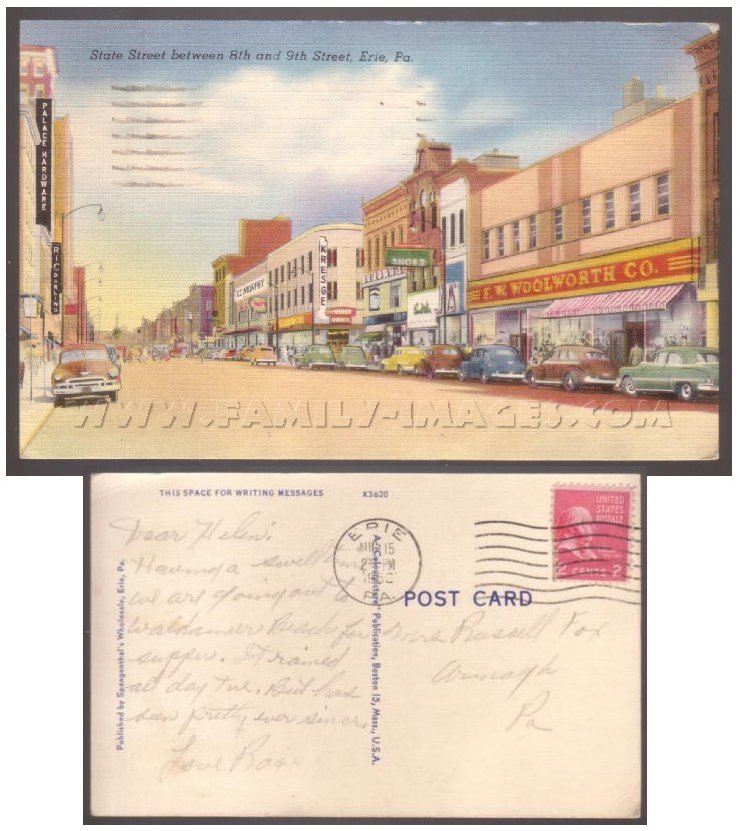 State Street between 8th and 9th Street, Erie, Pa.
PALACE HARDWARE
G.C. MURPHY
KRESGE
SHOES
F. W. WOOLWORTH CO.
WWW.FAMILY-IMAGES.COM
THIS SPACE FOR WRITING MESSAGES
K3-620
Dear Helen:
Having a swell time
we are going out to
Waldameer Beach for
supper. It rained
all day Tue. But had
sun pretty ever since.
Love Rose
Published by Spangenthal's Wholesale, Erie, Pa.
A "Colourpicture" Publication, Boston 15, Mass., U.S.A.
ERIE
AUG 15
PM
PA.
UNITED
STATES
POSTAGE
2 CENTS 2
POST CARD
Mrs Russell Fox
Armagh
Pa